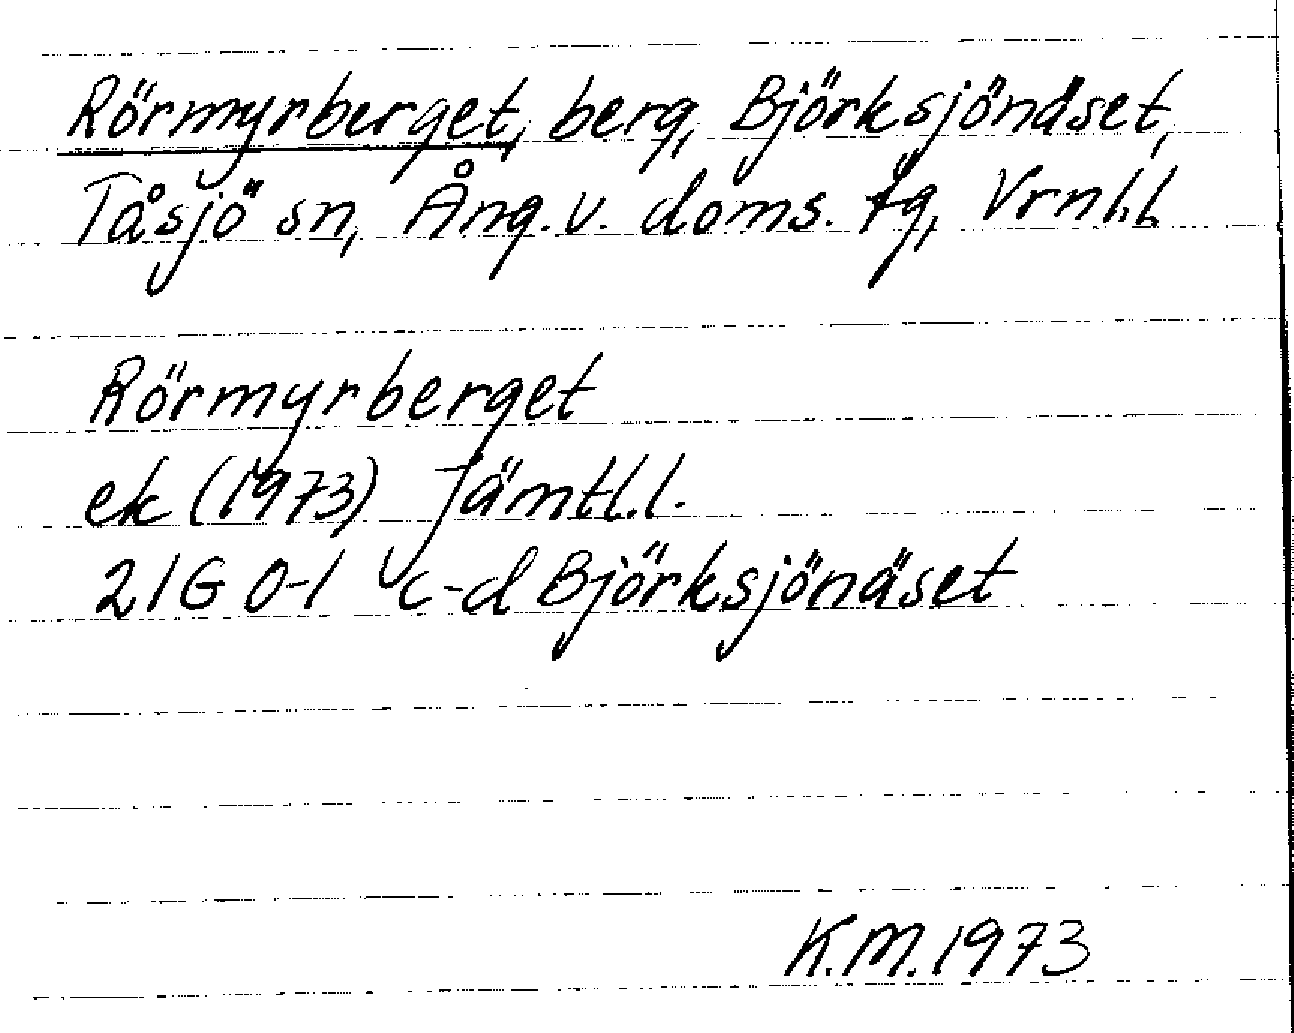 Rörmyrberget, berg, Björksjönäset,
Tåsjö sn, Ång. v. doms. tg, Vrnl.l.
Rörmyrberget
ek (1973) Jämtl.l.
21G 0-1 c-d Björksjönäset
K.M. 1973